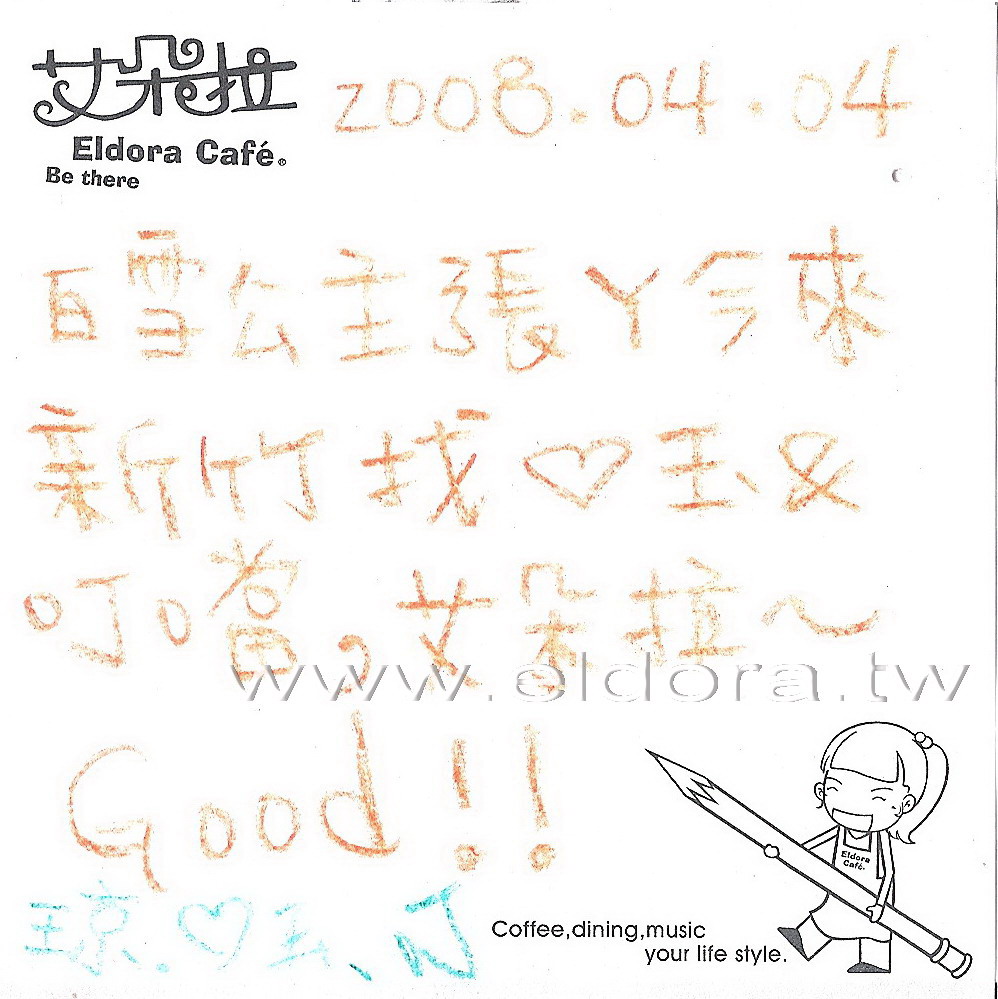 艾朵啦
Eldora Café®
Be there
2008.04.04
白雪公主張ㄚ今來
新竹找♡玉&
叮噹,艾朵拉~
www.eldora.tw
Good!!
Eldora
Café®
琼.♡玉、N
Coffee,dining,music
your life style.